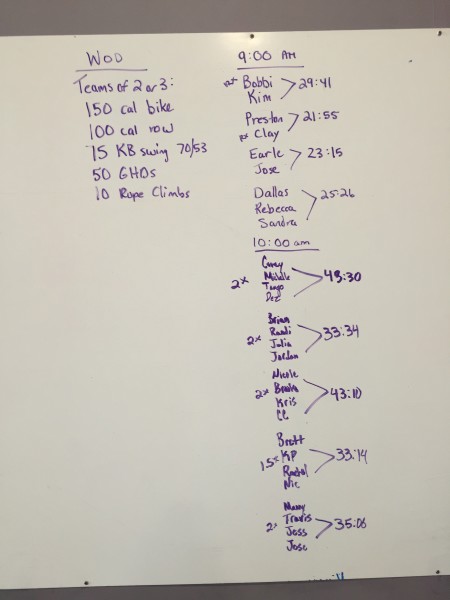 WOD
Teams of 2 or 3:
150 cal bike
100 cal row
15 KB swing 70/53
50 GHDs
10 Rope Climbs
9:00 AM
Bobbi
Kim
29:41
Preston
rx Clay
21:55
Earle
Jose
23:15
Dallas
Rebecca
Sandra
25:26
10:00 am
2x
Tango
Dez
2x
Brian
Randi
Julia
Jordan
33:34
2x
Nicole
Kris
CC
43:10
KP
Nic
33:14
Travis
Joss
Jose
35:06